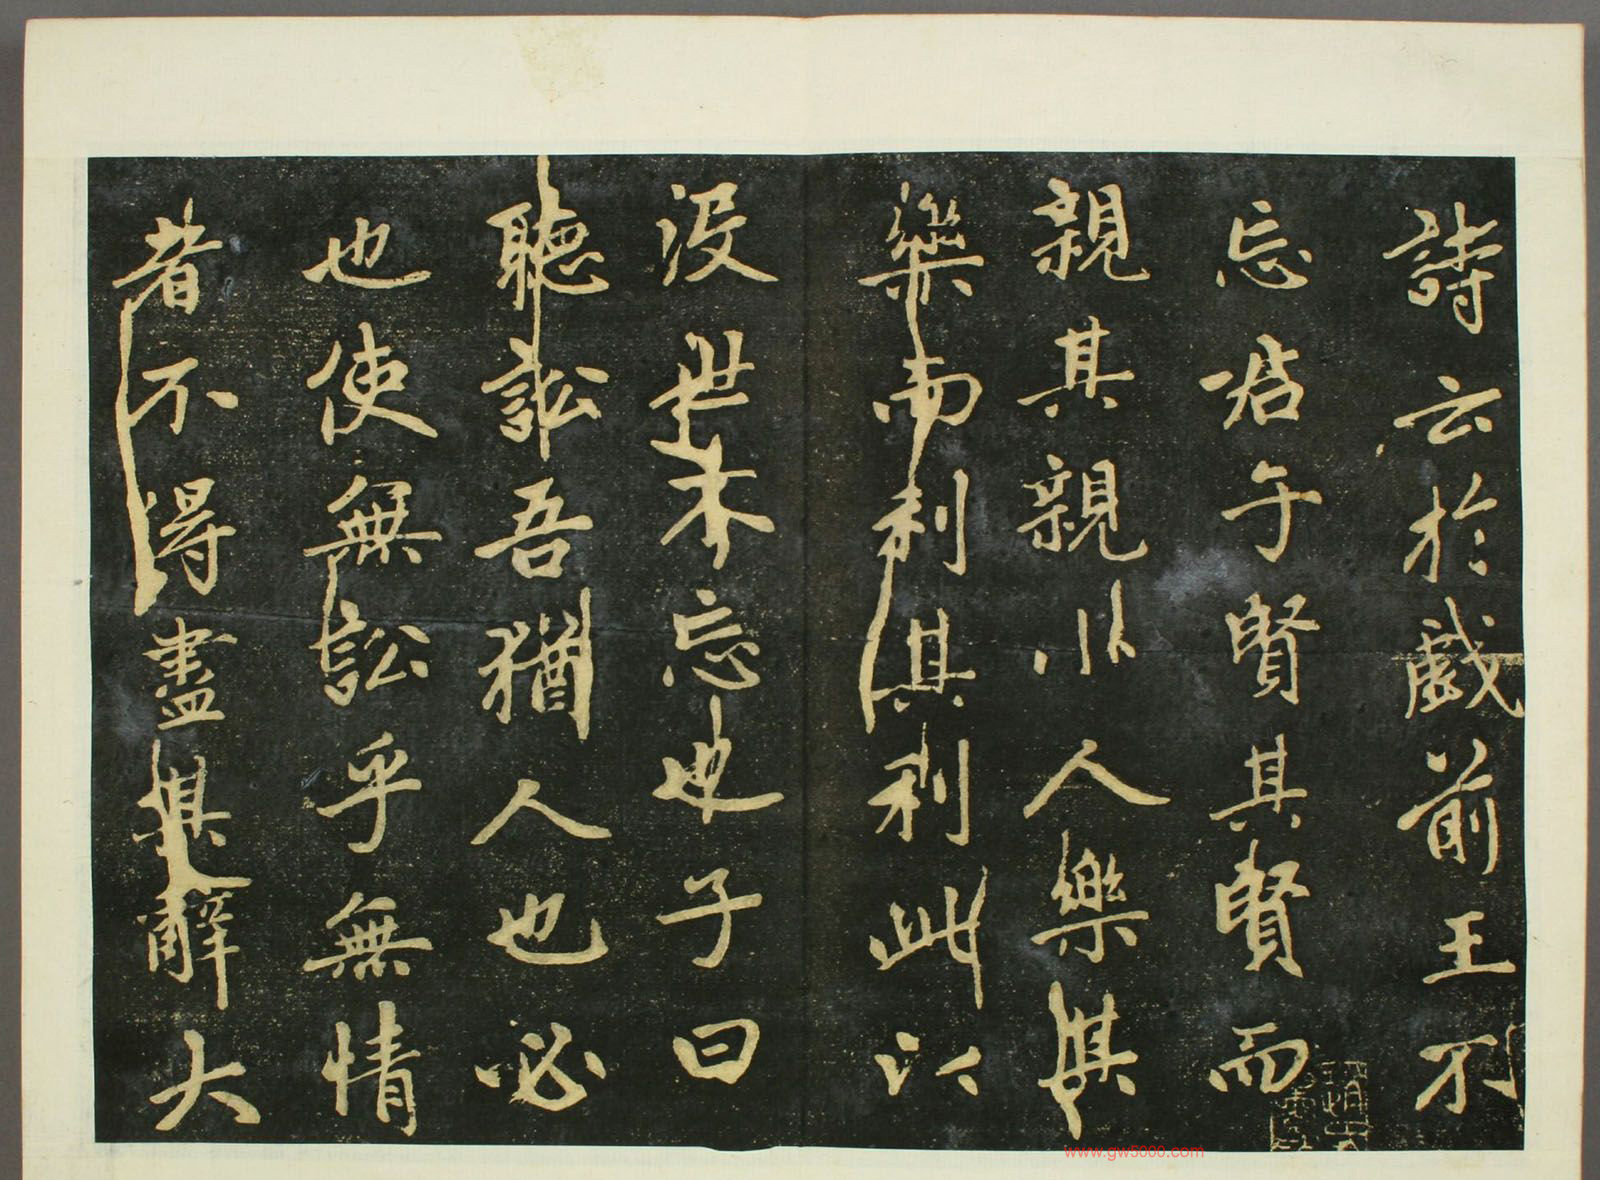 詩云於戲前王不
忘君子賢其賢而
親其親小人樂其
樂而利其利此以
沒世不忘也子曰
聽訟吾猶人也必
也使無訟乎無情
者不得盡其辭大
www.gw5000.com